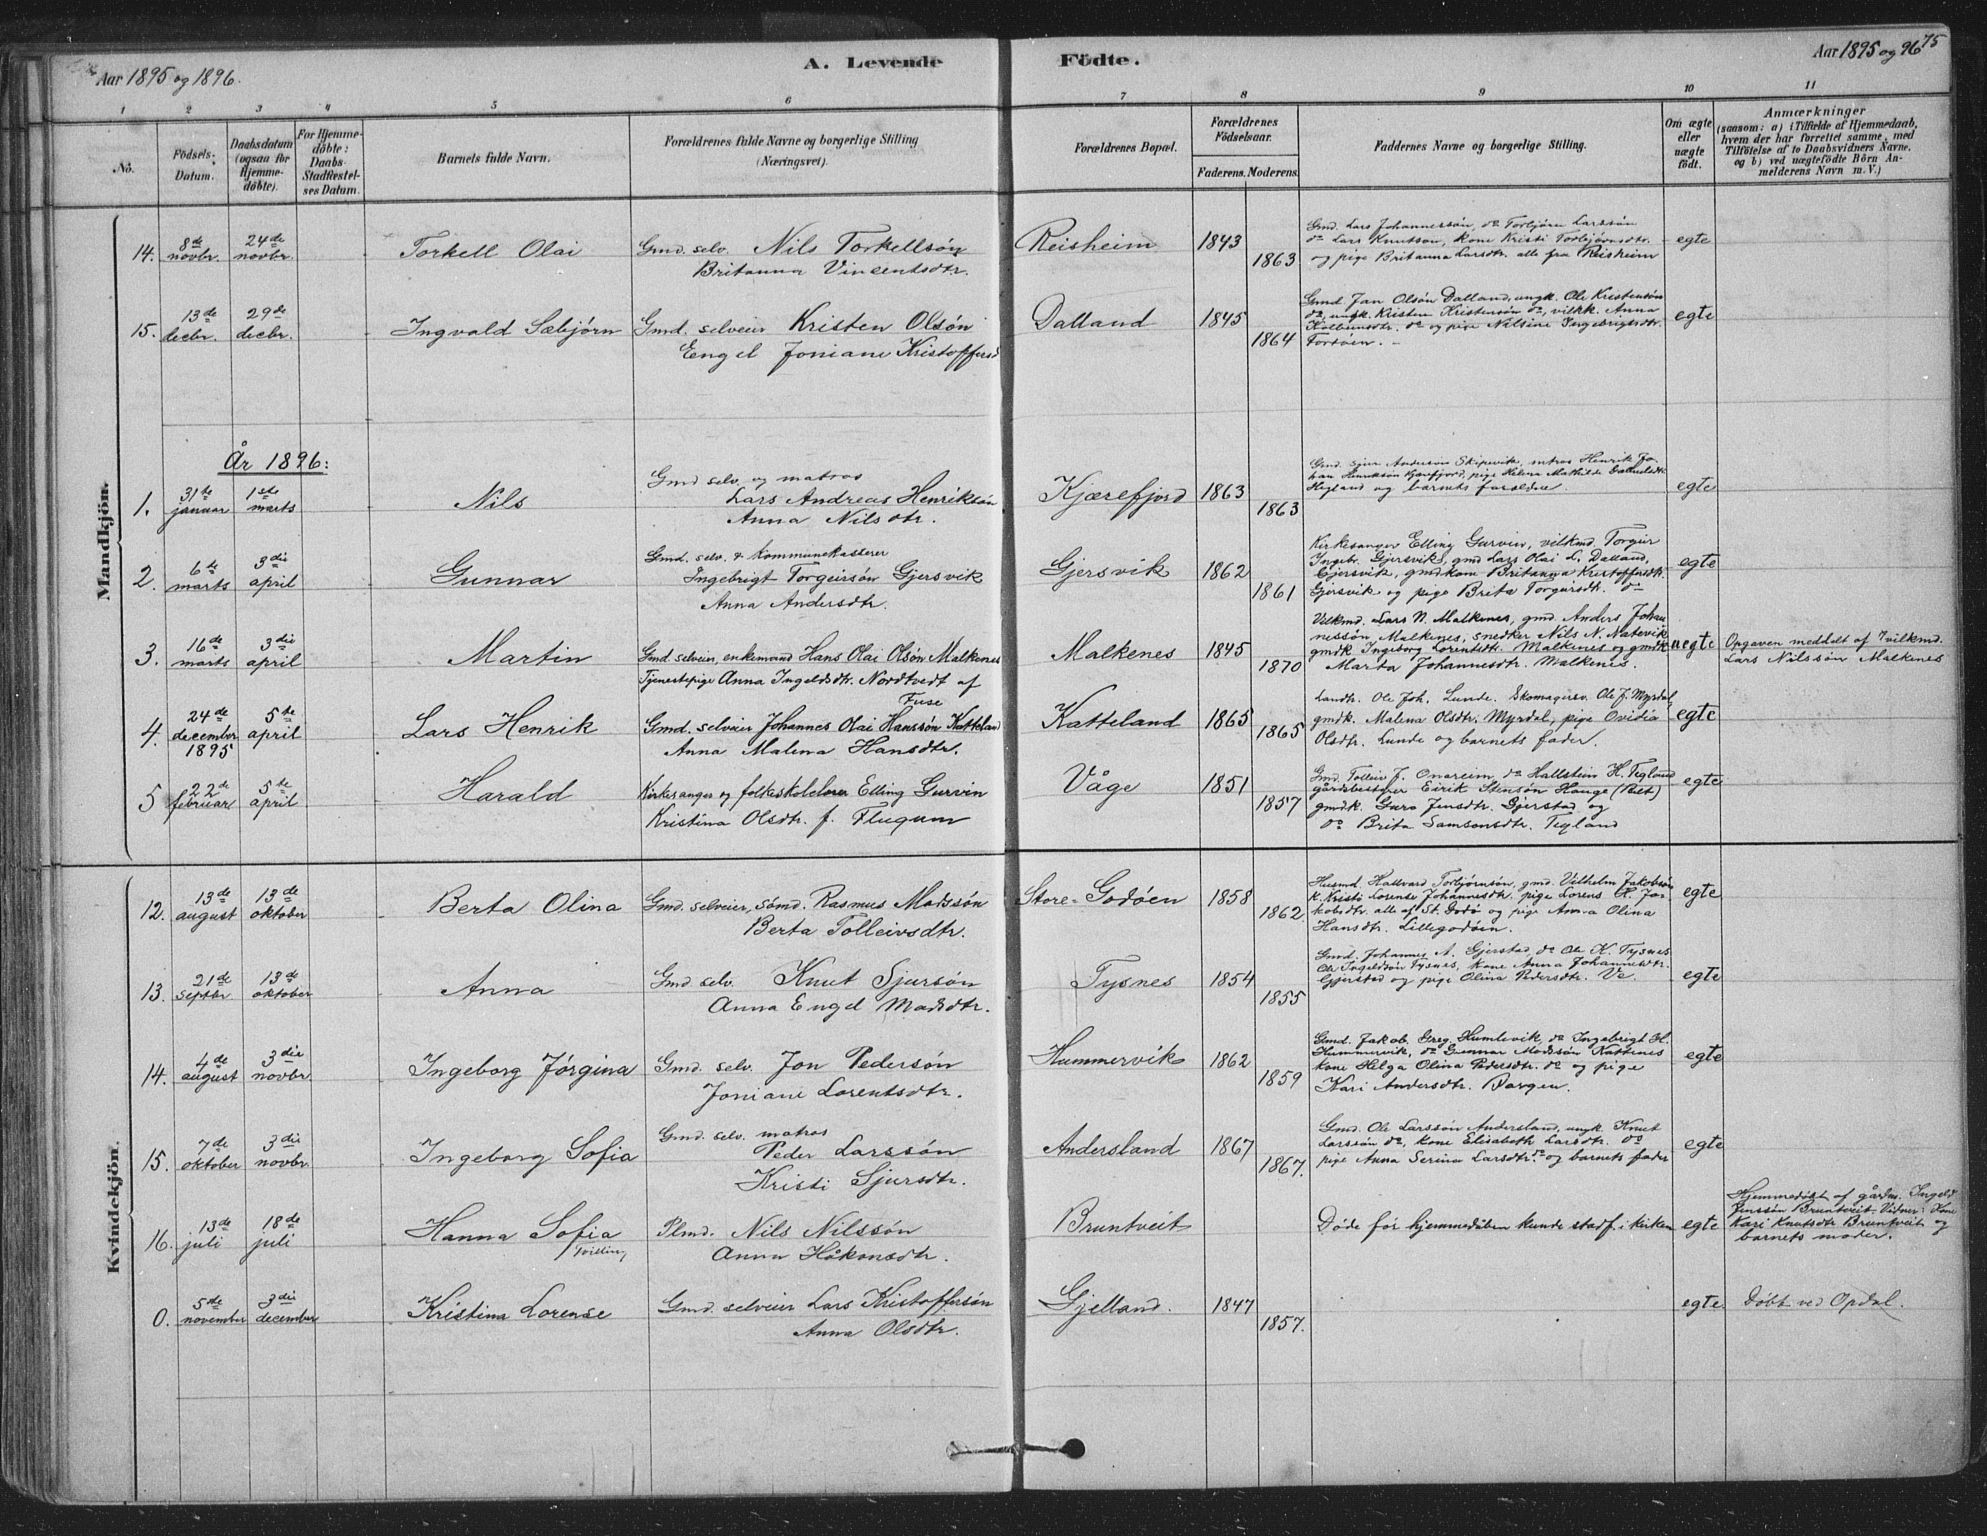 Aar 1895 og 1896.
A. Levende Födte.
Aar 1895 og 96
75
1 2 3 4 5 6 7 8 9 10 11
No.
Födsels-Datum.
Daabsdatum (ogsaa for Hjemme-döbte).
For Hjemme-döbte: Daabs-Stadfæstelses Datum.
Barnets fulde Navn.
Forældrenes fulde Navne og borgerlige Stilling (Næringsvei).
Forældrenes Bopæl.
Forældrenes Födselsaar.
Faderens. Moderens.
Faddernes Navne og borgerlige Stilling.
Om ægte eller uægte födt.
Anmærkninger
(saasom: a) i Tilfælde af Hjemmedaab,
hvem der har forrettet samme, med
Tilföielse af to Daabsvidners Navne.
og b) ved uægtefödte Börn An-
melderens Navn m. V.)
Mandkjön.
14. 8de novbr. 24de novbr. Torkell Olai
Gmd. selv. Nils Torkellsön
Britanna Vincentsdtr.
Reisheim 1843 1863
Gmd. Lars Johannessön, do Torbjörn Larssön
do Lars Knutson, kone Kristi Torbjörnsdtr.
og pige Britanna Larsdtr. alle fra Reisheim
egte
15. 13de decbr. 29de decbr. Ingvald Sæbjörn
Gmd. selveier Kristen Olsön
Engel Joniane Kristoffersd
Dalland 1845 1864
Gmd. Jan Olsön Dalland, ungk. Ole Kristensön
do, ungk. Kristen Kristensön do, vilkk. Anna
do og pige Nilsine Ingebrigtsdtr.
egte
År 1896:
1. 31te januar 1ste marts Nils
Gmd selv. og matros
Lars Andreas Henriksön
Anna Nilsdtr.
Kjærefjord 1863 1863
Gmd. Sjur Andersön Skipevik, matros Henrik Jo-
han Henriksön Kjærefjord, pige Helena Mathilde
og barnets forældre.
egte
2. 6te marts 3die april Gunnar
Gmd. selv. & kommunekasserer
Ingebrigt Torgeirsön Gjersvik
Anna Andersdtr.
Gjersvik 1862 1861
Kirkesanger Elling Gurvin, vilkmd Torgeir
Ingebr. Gjersvik, gmd Lars Olai L. Dalland,
Gjersvik, gmdkone Britanna Kristoffersdtr.
Gjersvik og pige Brita Torgeirsdtr. do
egte
3. 16de marts 3die april Martin
Gmd selveier, enkemand Hans Olai Olsön Malkenes
Tjenestepige Anna Ingeldsdtr. Nordtvedt af
Fuse
Malkenes 1845 1870
Vilkmd. Lars N. Malkenes, gmd. Anders Johan
nessön, Malkenes, snedker Nils N. Natevik
gmdk Ingeborg Lorentsdtr. Malkenes og gmdk
Marta Johannesdtr. Malkenes.
uegte
Opgaven meddelt af vilkmd.
Lars Nilssön Malkenes
4. 24de december 1895 5te april Lars Henrik
Gmd. selveier Johannes Olai Hanssön Katteland
Anna Malena Hansdtr.
Katteland 1865 1865
Landh. Ole Joh. Lunde. Skomagersv. Ole J. Myrdal,
gmdk. Malena Olsdtr. Myrdal, pige Ovidia
Olsdtr. Lunde og barnets fader.
egte
5 22de februar 5te april Harald
Kirkesanger og folkeskolelærer Elling Gurvin
Kristina Olsdtr. f. Flugum
Våge 1851 1857
Gmd. Tolleiv J. Onareim, do Hallstein H. Tegland
gårdsbestyrer Eirik Stensön Hauge
gmdk. Guro Jensdtr. Gjerstad og
do Brita Samsonsdtr. Tegland
egte
Kvindekjön.
12. 13de august 13de oktober Berta Olina
Gmd. selveier, sömd. Rasmus Madssön
Berta Tolleivsdtr.
Store-Godöen 1858 1862.
Husmd. Hallvard Torbjörnsön, gmd. Vilhelm Jakobsön
k. Kristi Lorense Johannesdtr. pige Lorens R. Ja-
kobsdtr. alle af St. Godö og pige Anna Olina
Hansdtr. Lillegodöen.
egte
13. 21de septbr 13de oktober Anna
Gmd selv. Knut Sjursön
Anna Engel Madsdtr.
Tysnes 1854 1855
Gmd. Johannes A. Gjerstad, do Ole K. Tysnes
Ole Ingeldsön Tysnes, kone Anna Johannesdtr.
Gjerstad og pige Olina Pedersdtr. Ve
egte
14. 4de august 3die novbr. Ingeborg Jörgina
Gmd. selv. Jon Pedersön
Joniane Lorentsdtr.
Hummervik 1862 1859
Gmd. Jakob. Greg. Humlevik, do Ingebrigt H.
Hummervik, do Gunnar Madssön Kattenes
kone Helga Olina Pedersdtr. do og pige
Kari Andersdtr. Borgen.
egte
15. 7de oktober 3die novbr. Ingeborg Sofia
Gmd. selv. matros
Peder Larssön
Kristi Sjursdtr.
Andersland 1867 1867.
Gmd. Ole Larssön Andersland, ungk. Knut
Larssön do, kone Elisabeth Larsdtr. do
pige Anna Serina Larsdtr. do og barnets fader
egte
16. 13de juli 18de juli Hanna Sofia
Tvilling
Plmd. Nils Nilssön
Anna Håkonsdtr.
Bruntveit
Döde för hjemmedåben kunde stadf. i kirken
egte
Hjemmedöbt af gårdm. Ingeld
Jenssön Bruntveit. Vidner: Kone
Kari Knutsdtr Bruntveit og
barnets moder.
0. 5te november 3die december Kristina Lorense
Gmd. selveier Lars Kristoffersön
Anna Olsdtr.
Gjelland. 1847 1857.
egte. Döbt ved Opdal.